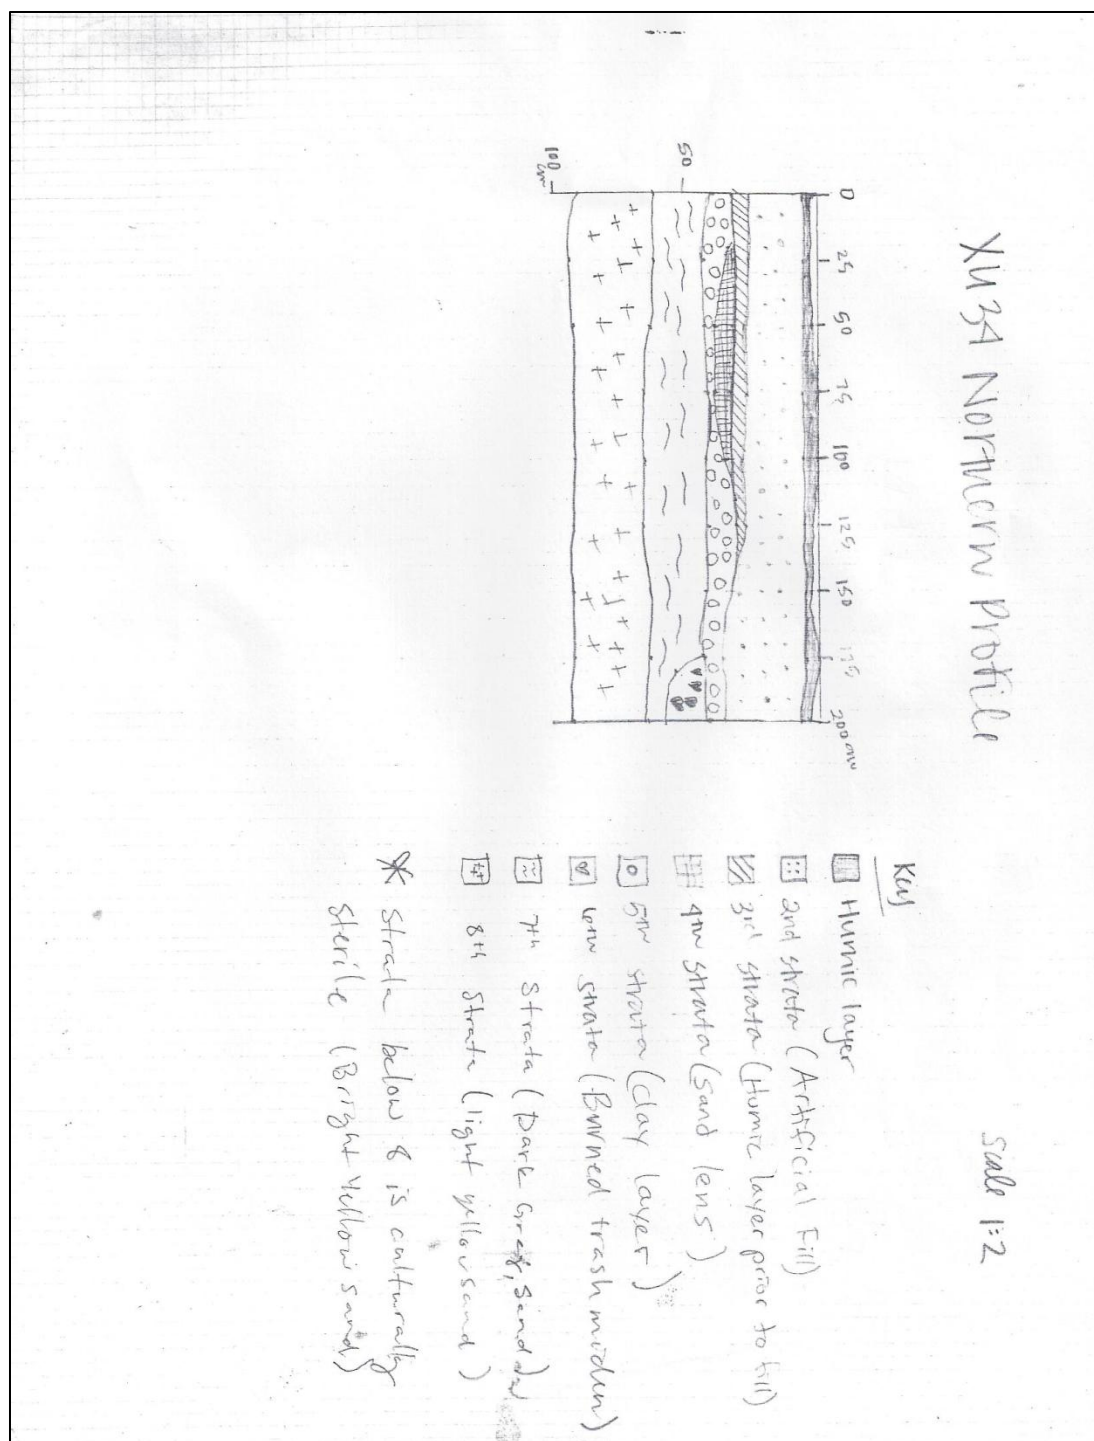 XU 34 Northern Profile
Scale 1:2
0 25 50 75 100 125 150 175 200 cm
50
100 cm
Key
Humic layer
2nd strata (Artificial Fill)
3rd strata (Humic layer prior to fill)
4th strata (sand lens)
5th strata (clay layer)
6th strata (Burned trash midden)
7th Strata (Dark Grey, Sand
8th Strata (light yellow sand)
* Strata below 8 is culturally
Sterile (Bright Yellow sand)